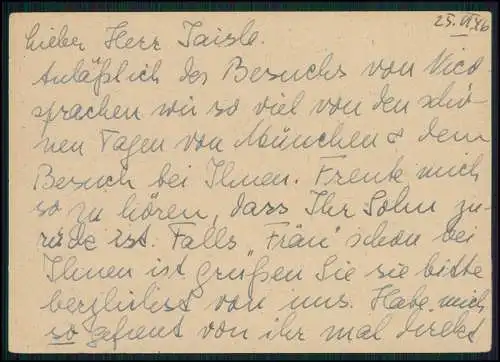 25. VI 46
Lieber Herr Taisle.
Anläßlich des Besuchs von Nico
sprachen wir so viel von den schö-
nen Tagen von München & dem
Besuch bei Ihnen. Freute mich
so zu hören, dass Ihr Sohn zu-
rück ist. Falls "Frau" schon bei
Ihnen ist grüßen Sie sie bitte
herzlichst von uns. Habe mich
so gefreut von ihr mal direkt